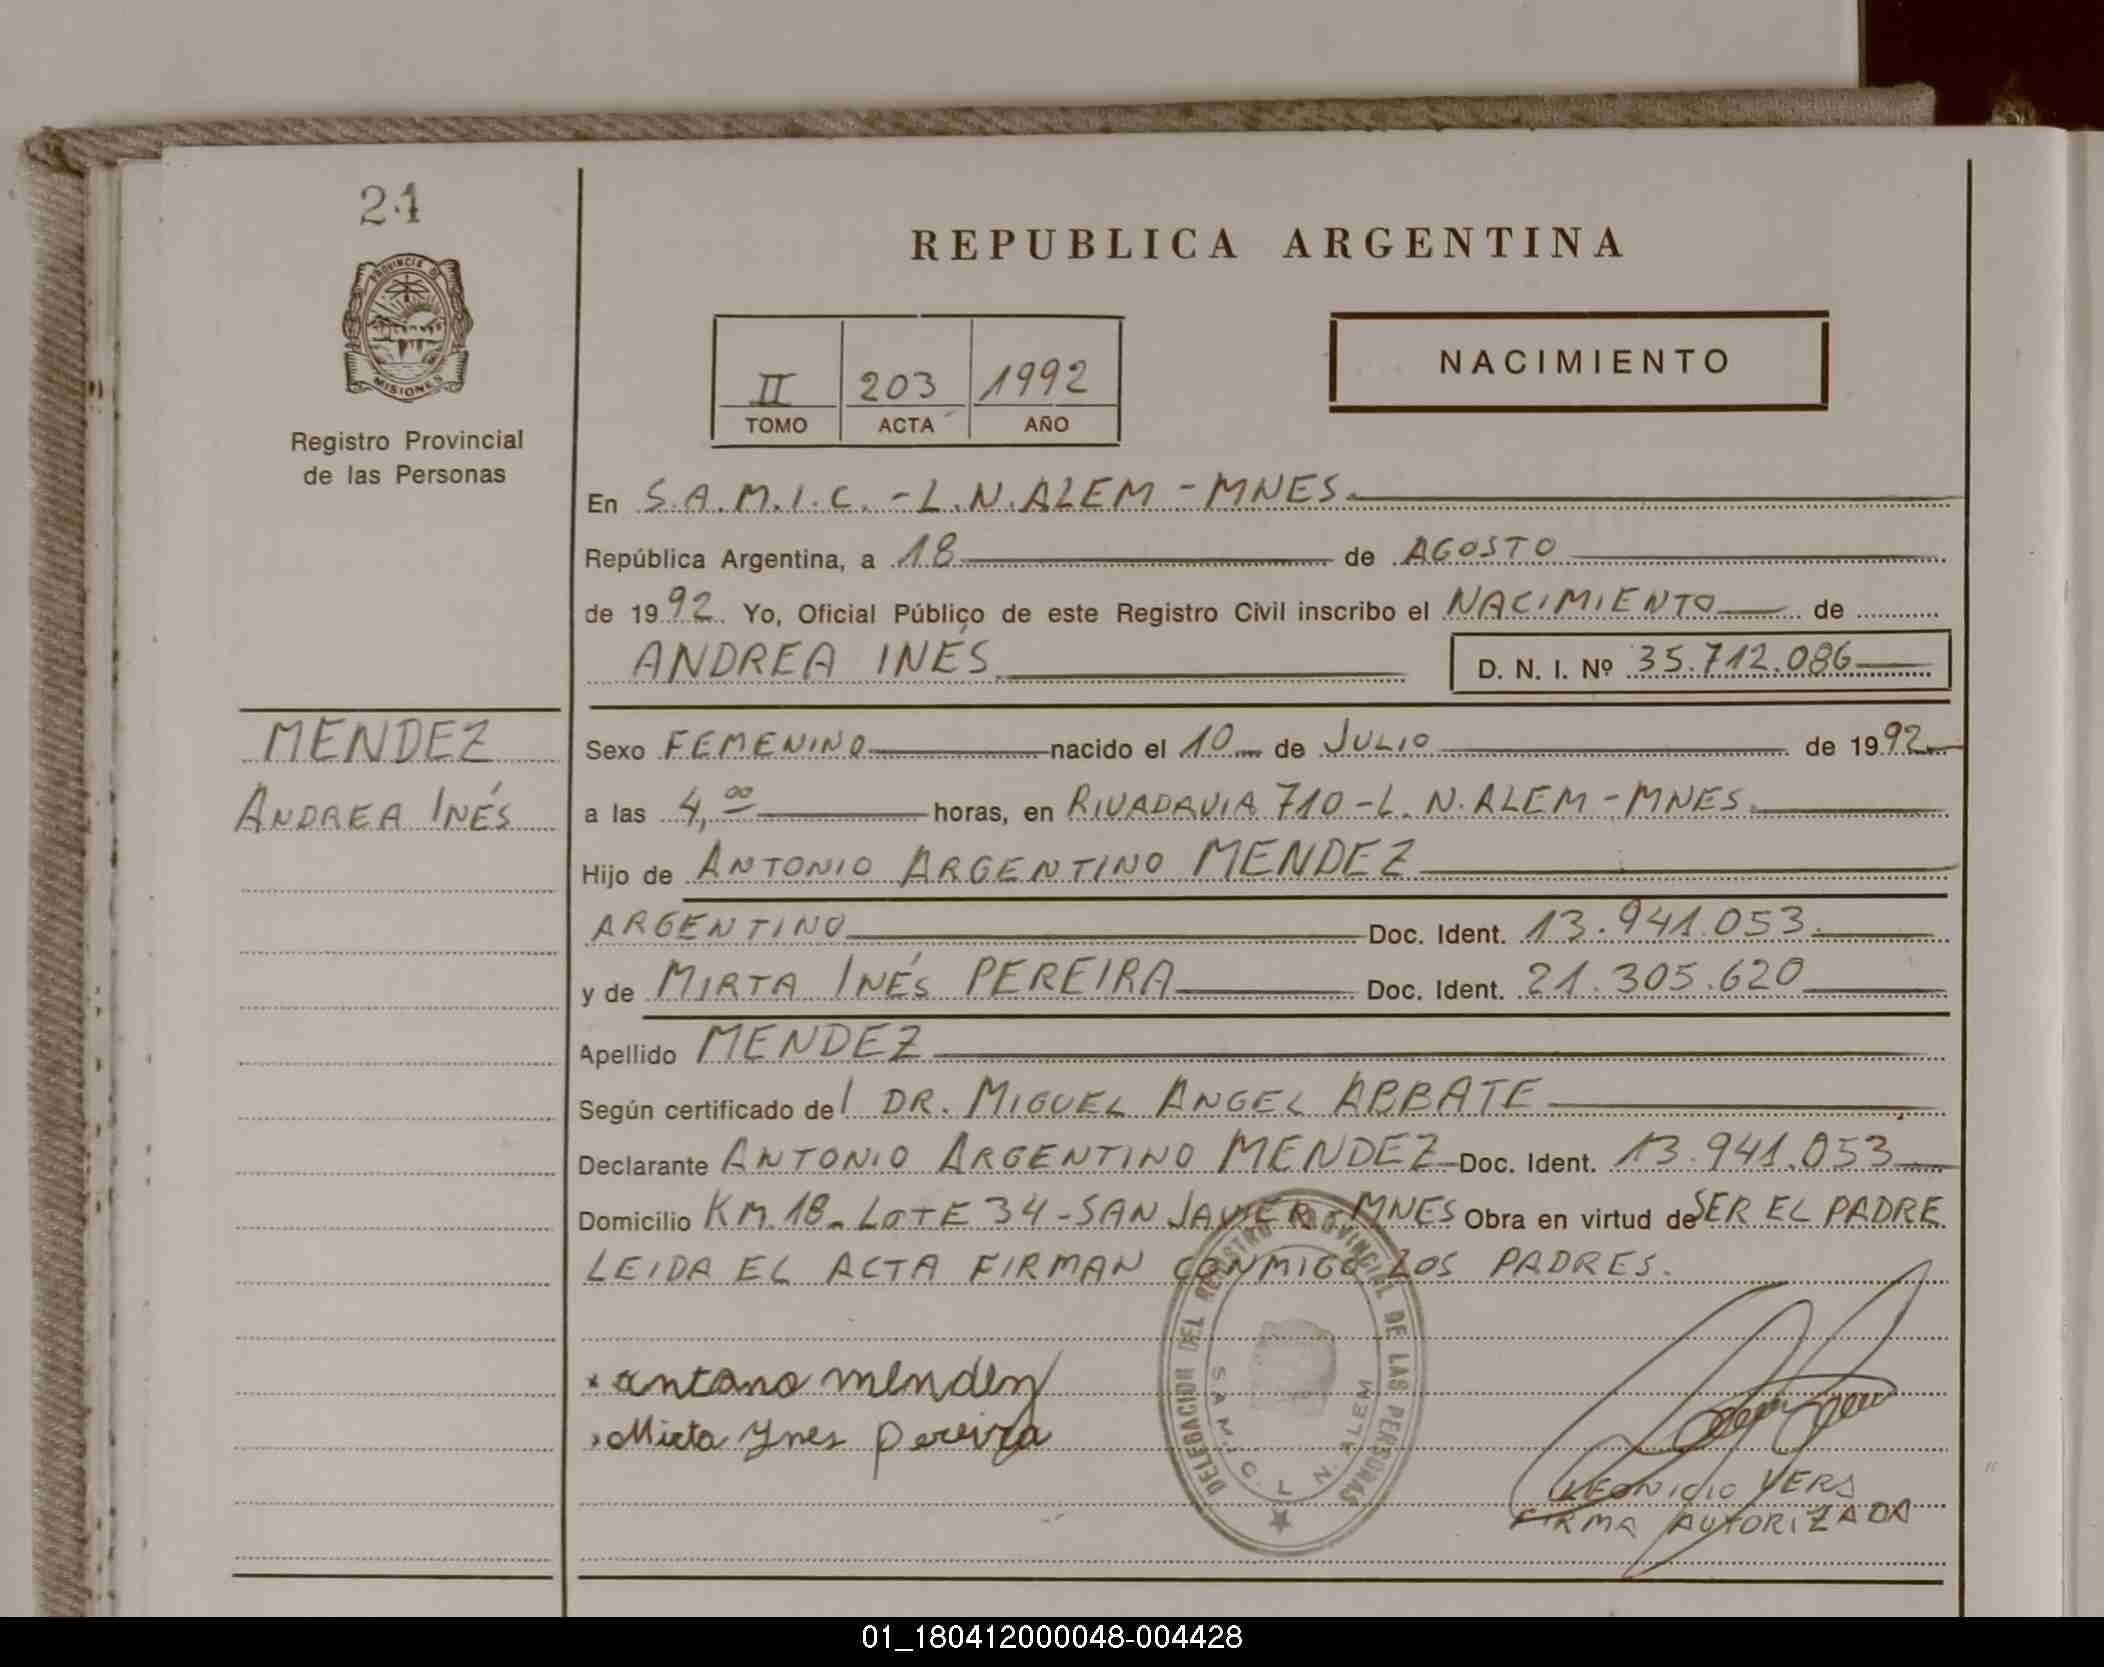 24
PROVINCIA DE
MISIONES
Registro Provincial
de las Personas
MENDEZ
ANDREA INÉS
REPUBLICA ARGENTINA
II 203 1992
TOMO ACTA AÑO
NACIMIENTO
En S.A.M.I.C. - L.N. ALEM - MNES.
República Argentina, a 18 de AGOSTO
de 1992. Yo, Oficial Público de este Registro Civil inscribo el NACIMIENTO de
ANDREA INÉS D. N. I. Nº 35.712.086
Sexo FEMENINO nacido el 10 de JULIO de 1992
a las 4,00 horas, en RIVADAVIA 710 - L. N. ALEM - MNES.
Hijo de ANTONIO ARGENTINO MENDEZ
ARGENTINO Doc. Ident. 13.941.053.
y de MIRTA INÉS PEREIRA Doc. Ident. 21.305.620
Apellido MENDEZ
Según certificado del DR. MIGUEL ANGEL ABBATE
Declarante ANTONIO ARGENTINO MENDEZ Doc. Ident. 13.941.053
Domicilio KM. 18 - LOTE 34 - SAN JAVIER - MNES Obra en virtud de SER EL PADRE
LEIDA EL ACTA FIRMAN CONMIGO LOS PADRES.
DELEGACION DEL REGISTRO PROVINCIAL DE LAS PERSONAS
S.A.M.I.C. L. N. ALEM
antono mendez
Mirta Ynes pereira
LEONICIO VERA
FIRMA AUTORIZADA
01_180412000048-004428